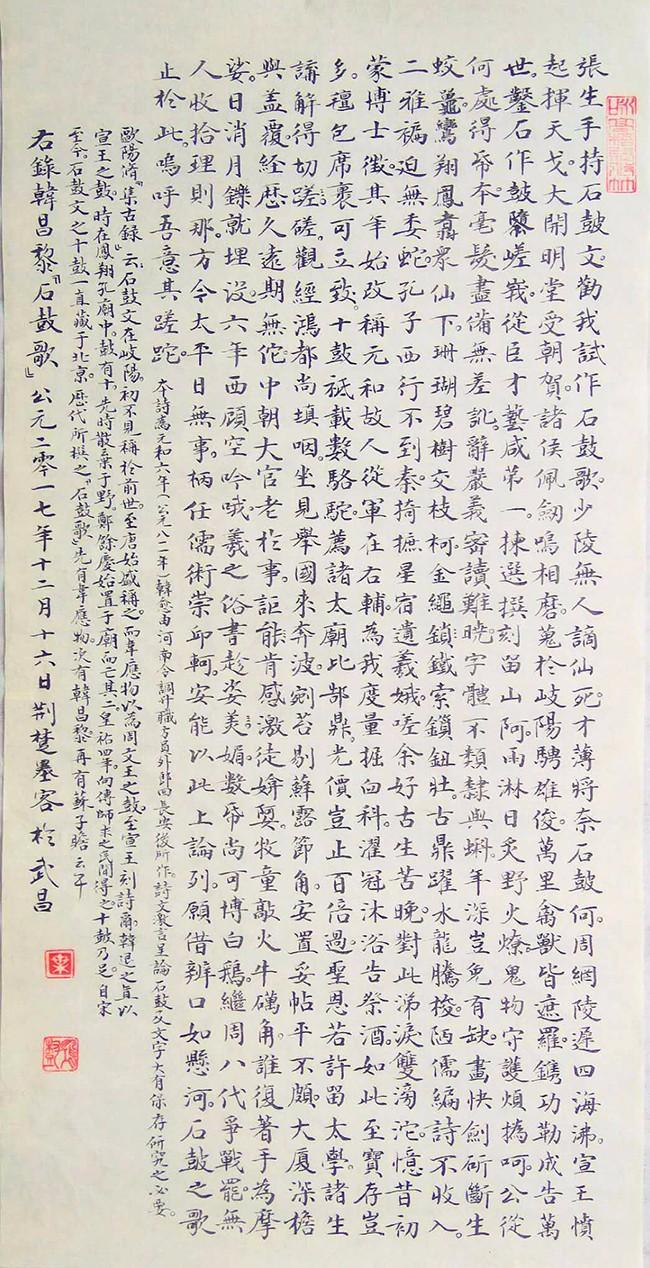 張生手持石鼓文。勸我試作石鼓歌。少陵無人謫仙死。才薄將奈石鼓何。周綱陵遲四海沸。宣王憤
起揮天戈。大開明堂受朝賀。諸侯佩劍鳴相磨。蒐於岐陽騁雄俊。萬里禽獸皆遮羅。鐫功勒成告萬
世。鑿石作鼓隳嵯峩。從臣才藝咸第一。揀選撰刻留山阿。雨淋日炙野火燎。鬼物守護煩撝呵。公從
何處得帋本。毫髮盡備無差訛。辭嚴義密讀難曉。字體不類隸與蝌。年深豈免有缺畫。快劍斫斷生
蛟鼉。鸞翔鳳翥衆仙下。珊瑚碧樹交枝柯。金繩鎖鐵索鎖鈕壯。古鼎躍水龍騰梭。陋儒編詩不收入。
二雅褊迫無委蛇。孔子西行不到秦。掎摭星宿遺羲娥。嗟余好古生苦晚。對此涕淚雙滂沱。憶昔初
蒙博士徵。其年始改稱元和。故人從軍在右輔。為我度量掘臼科。濯冠沐浴告祭酒。如此至寶存豈
多。氈包席裹可立致。十鼓祗載數駱駝。薦諸太廟比郜鼎。光價豈止百倍過。聖恩若許留太學。諸生
講解得切蹉磋。觀經鴻都尚填咽。坐見舉國來奔波。剜苔剔蘚露節角。安置妥帖平不頗。大厦深檐
與盖覆。経歷久遠期無佗。中朝大官老於事。詎能肯感激徒媕娿。牧童敲火牛礪角。誰復著手為摩
娑。日消月鑠就埋没。六年西顧空吟哦。羲之俗書趁姿美媚。數帋尚可博白鵝。繼周八代爭戰罷。無
人收拾理則那。方今太平日無事。柄任儒術崇邱軻。安能以此上論列。願借辨口如懸河。石鼓之歌
止於此。嗚呼吾意其蹉跎。 本詩為元和六年(公元八一一年)韓愈由河南令調升職方員外郎回長安後所作。詩文數言呈論石鼓及文字大有保存研究之必要。
歐陽脩『集古録』云：石鼓文在岐陽。初不見稱於前世。至唐始盛稱之。而韋應物以為周文王之鼓。至宣王刻詩爾。韓退之直以
宣王之鼓。時在鳳翔孔廟中。鼓有十。先時散棄于野。鄭餘慶始置于廟而亡其二。皇祐四年向傳師求之民間得之十鼓乃足。自宋
至今。石鼓文之十鼓一直藏于北京。歷代所撰之『石鼓歌』先有韋應物。次有韓昌黎。再有蘇子瞻云乎
右錄韓昌黎『石鼓歌』公元二零一七年十二月十六日荆楚墨客於武昌